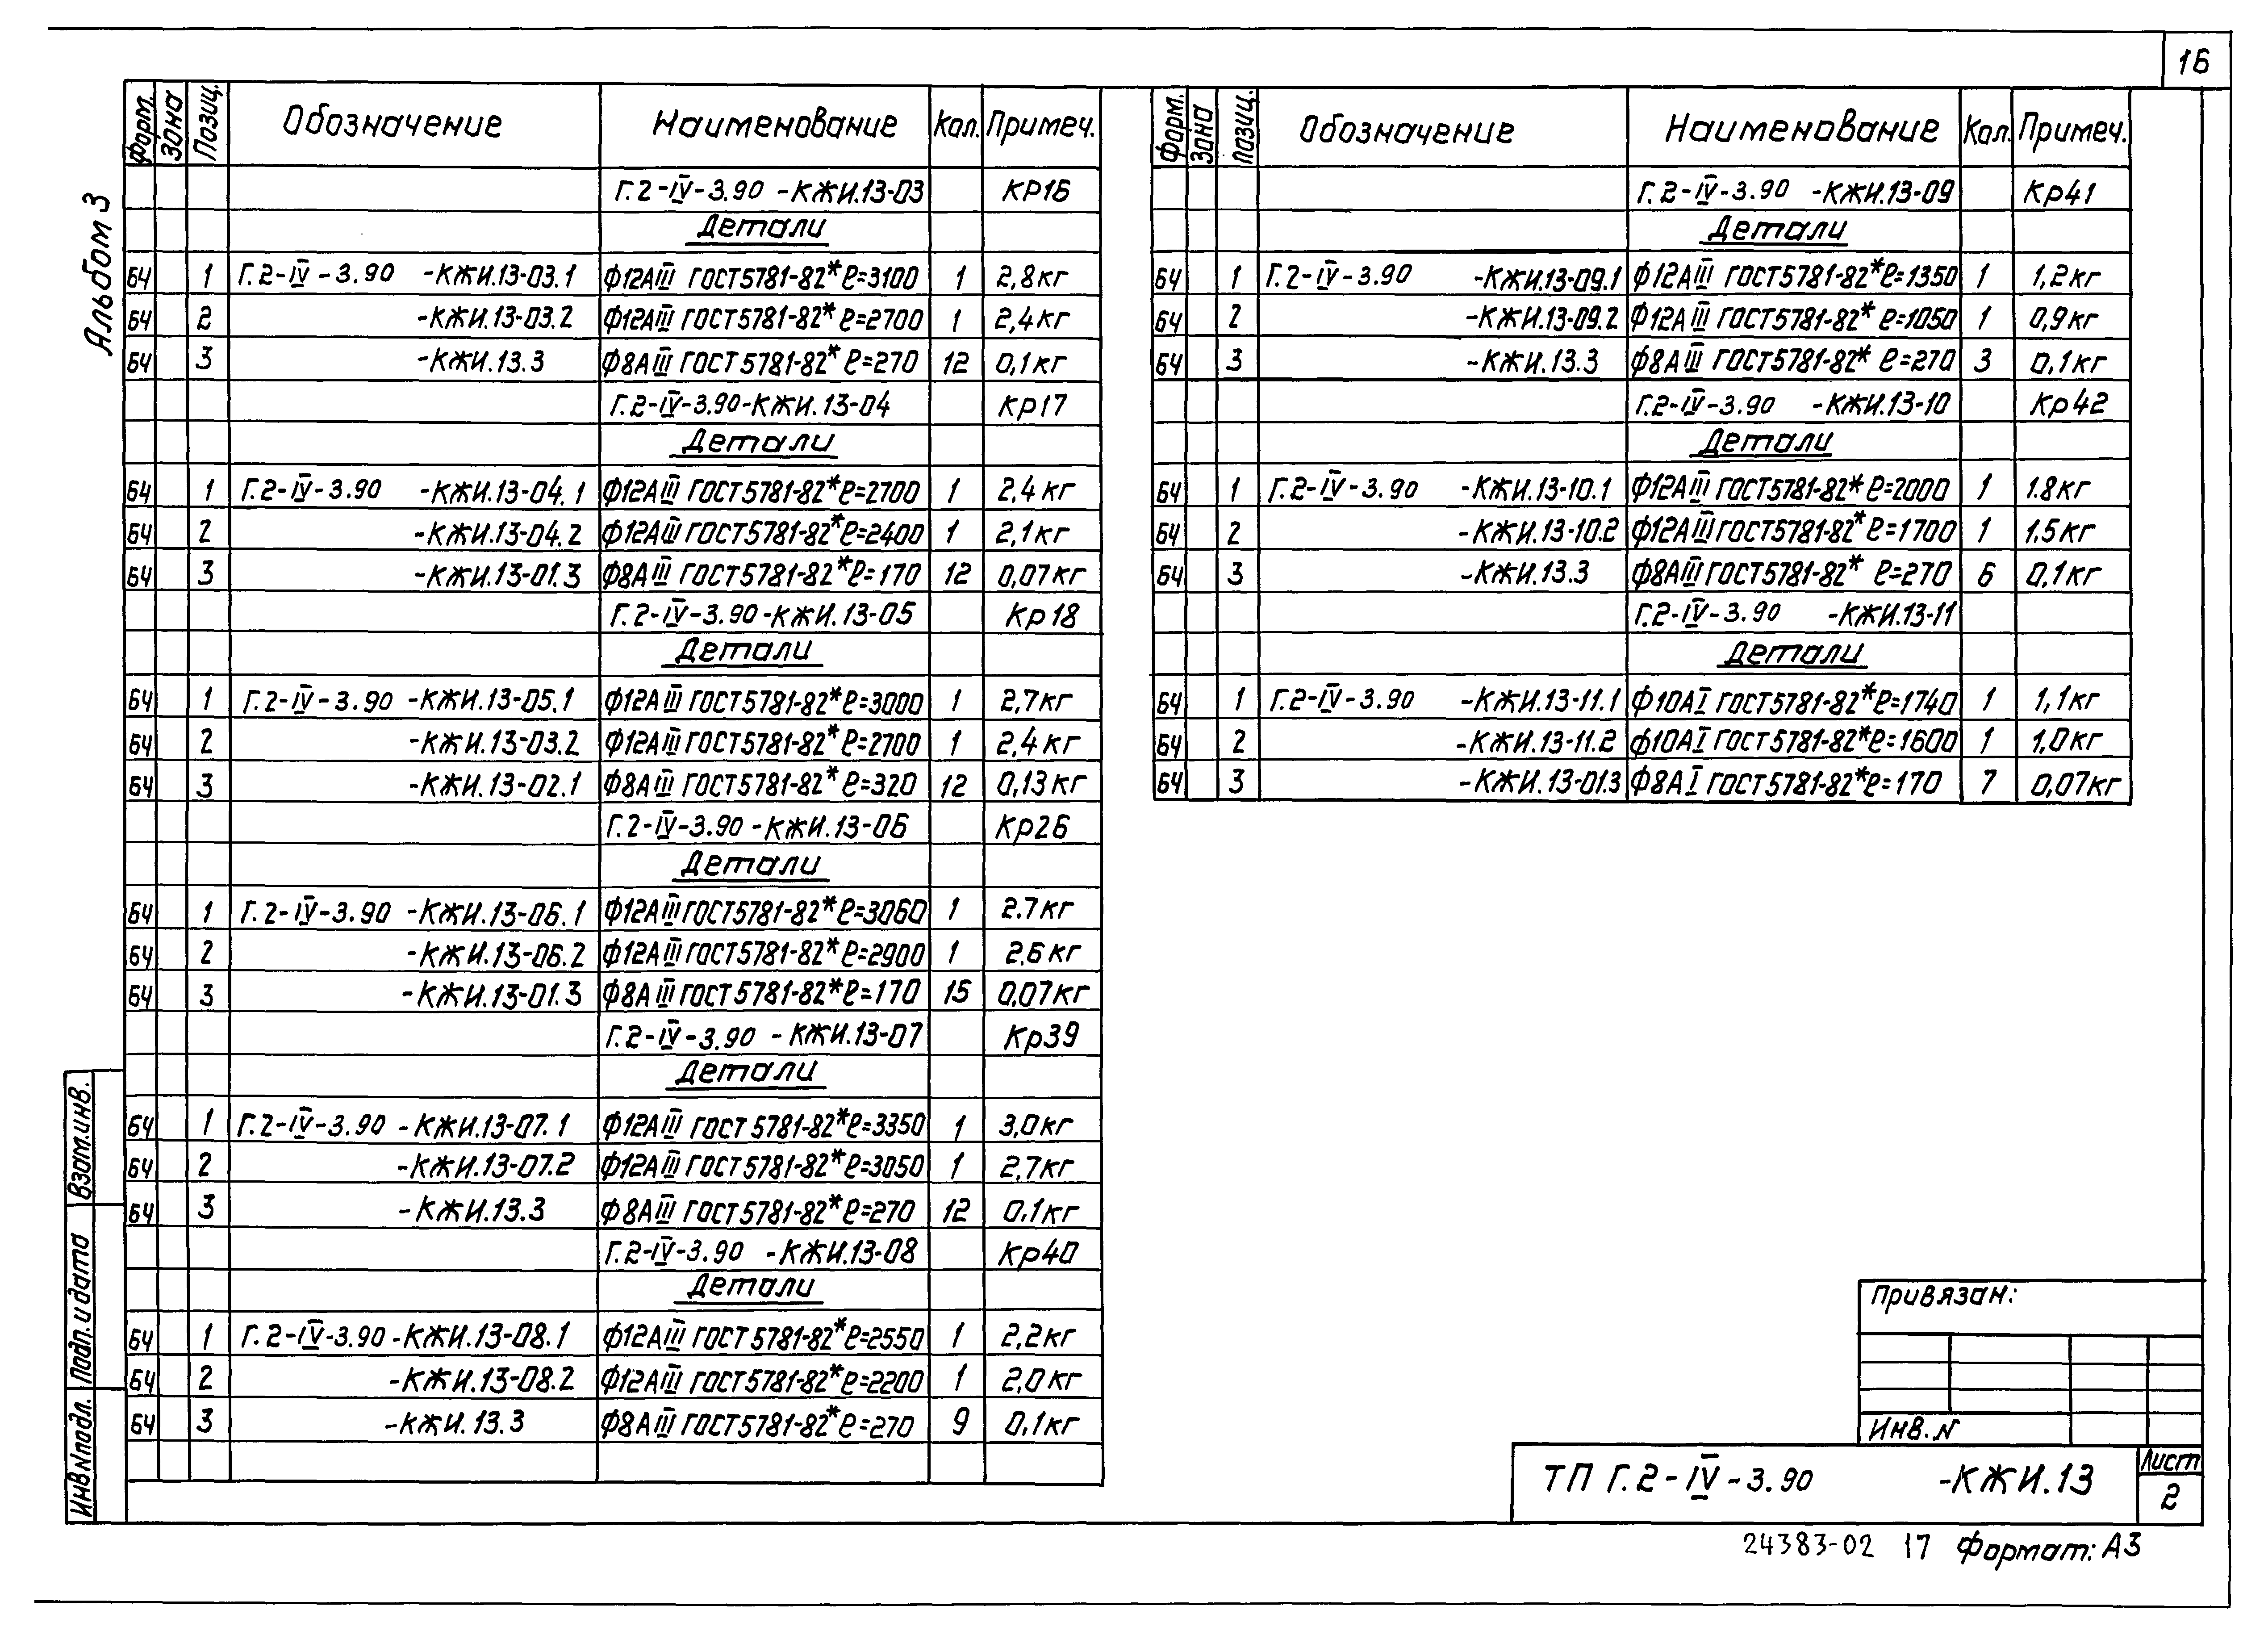 16
Альбом 3
Форм. Зона Позиц. Обозначение Наименование Кол. Примеч.
Г.2-IV-3.90 -КЖИ.13-03 КР16
Детали
БЧ 1 Г.2-IV-3.90 -КЖИ.13-03.1 Ф12АIII ГОСТ5781-82* ℓ=3100 1 2,8кг
БЧ 2 -КЖИ.13-03.2 Ф12АIII ГОСТ5781-82* ℓ=2700 1 2,4кг
БЧ 3 -КЖИ.13.3 Ф8АIII ГОСТ5781-82* ℓ=270 12 0,1кг
Г.2-IV-3.90-КЖИ.13-04 Кр17
Детали
БЧ 1 Г.2-IV-3.90 -КЖИ.13-04.1 Ф12АIII ГОСТ5781-82* ℓ=2700 1 2,4кг
БЧ 2 -КЖИ.13-04.2 Ф12АIII ГОСТ5781-82* ℓ=2400 1 2,1кг
БЧ 3 -КЖИ.13-01.3 Ф8АIII ГОСТ5781-82* ℓ=170 12 0,07кг
Г.2-IV-3.90-КЖИ.13-05 Кр18
Детали
БЧ 1 Г.2-IV-3.90 -КЖИ.13-05.1 Ф12АIII ГОСТ5781-82* ℓ=3000 1 2,7кг
БЧ 2 -КЖИ.13-03.2 Ф12АIII ГОСТ5781-82* ℓ=2700 1 2,4кг
БЧ 3 -КЖИ.13-02.1 Ф8АIII ГОСТ5781-82* ℓ=320 12 0,13кг
Г.2-IV-3.90-КЖИ.13-06 Кр26
Детали
БЧ 1 Г.2-IV-3.90 -КЖИ.13-06.1 Ф12АIII ГОСТ5781-82* ℓ=3060 1 2.7кг
БЧ 2 -КЖИ.13-06.2 Ф12АIII ГОСТ5781-82* ℓ=2900 1 2.6кг
БЧ 3 -КЖИ.13-01.3 Ф8АIII ГОСТ5781-82* ℓ=170 15 0,07кг
Г.2-IV-3.90 -КЖИ.13-07 Кр39
Детали
БЧ 1 Г.2-IV-3.90 -КЖИ.13-07.1 Ф12АIII ГОСТ5781-82* ℓ=3350 1 3,0кг
БЧ 2 -КЖИ.13-07.2 Ф12АIII ГОСТ5781-82* ℓ=3050 1 2,7кг
БЧ 3 -КЖИ.13.3 Ф8АIII ГОСТ5781-82* ℓ=270 12 0.1кг
Г.2-IV-3.90 -КЖИ.13-08 Кр40
Детали
БЧ 1 Г.2-IV-3.90-КЖИ.13-08.1 Ф12АIII ГОСТ5781-82* ℓ=2550 1 2,2кг
БЧ 2 -КЖИ.13-08.2 Ф12АIII ГОСТ5781-82* ℓ=2200 1 2,0кг
БЧ 3 -КЖИ.13.3 Ф8АIII ГОСТ5781-82* ℓ=270 9 0,1кг
Форм. Зона Позиц. Обозначение Наименование Кол. Примеч.
Г.2-IV-3.90 -КЖИ.13-09 Кр41
Детали
БЧ 1 Г.2-IV-3.90 -КЖИ.13-09.1 Ф12АIII ГОСТ5781-82* ℓ=1350 1 1,2кг
БЧ 2 -КЖИ.13-09.2 Ф12АIII ГОСТ5781-82* ℓ=1050 1 0,9кг
БЧ 3 -КЖИ.13.3 Ф8АIII ГОСТ5781-82* ℓ=270 3 0,1кг
Г.2-IV-3.90 -КЖИ.13-10 Кр42
Детали
БЧ 1 Г.2-IV-3.90 -КЖИ.13-10.1 Ф12АIII ГОСТ5781-82* ℓ=2000 1 1.8кг
БЧ 2 -КЖИ.13-10.2 Ф12АIII ГОСТ5781-82* ℓ=1700 1 1.5кг
БЧ 3 -КЖИ.13.3 Ф8АIII ГОСТ5781-82* ℓ=270 6 0.1кг
Г.2-IV-3.90 -КЖИ.13-11
Детали
БЧ 1 Г.2-IV-3.90 -КЖИ.13-11.1 Ф10АI ГОСТ5781-82* ℓ=1740 1 1,1кг
БЧ 2 -КЖИ.13-11.2 Ф10АI ГОСТ5781-82* ℓ=1600 1 1,0кг
БЧ 3 -КЖИ.13-01.3 Ф8АI ГОСТ5781-82* ℓ=170 7 0,07кг
Взам.инв.
Подп. и дата
Инв N подл.
Привязан:
Инв. N
ТП Г.2-IV-3.90 -КЖИ.13
Лист
2
24383-02 17 Формат: А3